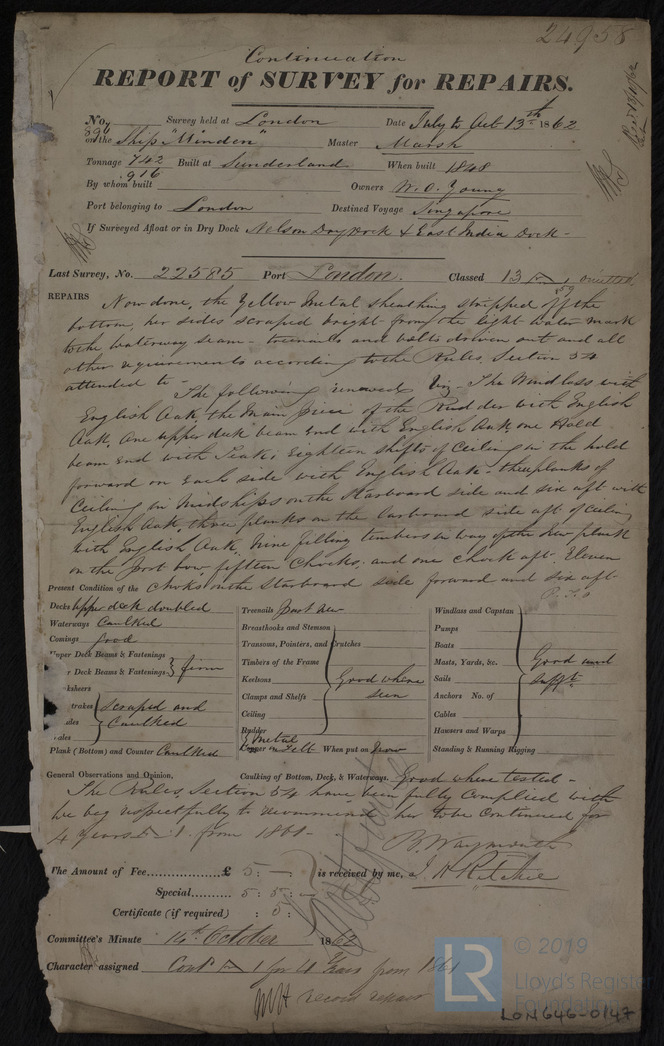 24958
Continuation
REPORT of SURVEY for REPAIRS.
No. 896 Survey held at London Date July to Oct 13th 1862
on the Ship "Minden" Master Marsh
Tonnage 742 916 Built at Sunderland When built 1848
By whom built Owners W. O. Young
Port belonging to London Destined Voyage Singapore
If Surveyed Afloat or in Dry Dock Nelson Dry Dock & East India Dock -
Last Survey, No. 22585 Port London. Classed 13 A 1 omitted
REPAIRS Now done, the Yellow Metal sheathing stripped off the
bottom, her sides scraped bright from the light water mark
to the waterway seam - treenails and bolts driven out and all
other requirements according to the Rules, Section 54
attended to - The following renewed Viz - The Windlass with
English Oak, the Main piece of the Rudder with English
Oak, One upper deck beam End with English Oak, one Hold
beam End with Teak; Eighteen shifts of Ceiling in the hold
forward on Each side with English Oak - the planks of
Ceiling in Midships on the Starboard side and six aft with
English Oak, three planks on the larboard side aft of Ceiling
with English Oak, Nine filling timbers in way of the New plank
on the port bow, fifteen Chocks, and one chock aft. Eleven
Chocks on the Starboard side forward and six aft.
P.T.O
Present Condition of the
Decks Upper deck doubled
Waterways Caulked
Comings good
Upper Deck Beams & Fastenings
r Deck Beams & Fastenings firm
ksheers
trakes scraped and
ales caulked
ales
Plank (Bottom) and Counter Caulked
Treenails Part New
Breasthooks and Stemson
Transoms, Pointers, and Crutches
Timbers of the Frame
Keelsons Good where
Clamps and Shelfs seen
Ceiling
Rudder
Y Metal
Copper on Felt When put on Now
Windlass and Capstan
Pumps
Boats
Masts, Yards, &c. Good and
Sails sufft
Anchors No. of
Cables
Hawsers and Warps
Standing & Running Rigging
General Observations and Opinion, Caulking of Bottom, Deck, & Waterways. Good where tested -
The Rules, Section 54 have been fully complied with
we beg respectfully to recommend her to be continued for
4 Years A 1. from 1861 -
B. Waymouth
The Amount of Fee £ 5 : - is received by me, J. H. Ritchie
Special 5 : 5 : -
Certificate (if required) : 5 :
Committee's Minute 14th October 1862
Character assigned Contd A 1 for 4 Years from 1861
record repairs
LR
© 2019
Lloyd's Register
Foundation
LON646-0147